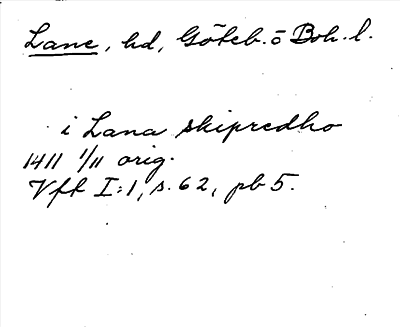 Lane, hd, Göteb. o Boh. l.
i Lana skipredho
1411 1/11 orig.
Vft I:1, s. 62, pb 5.